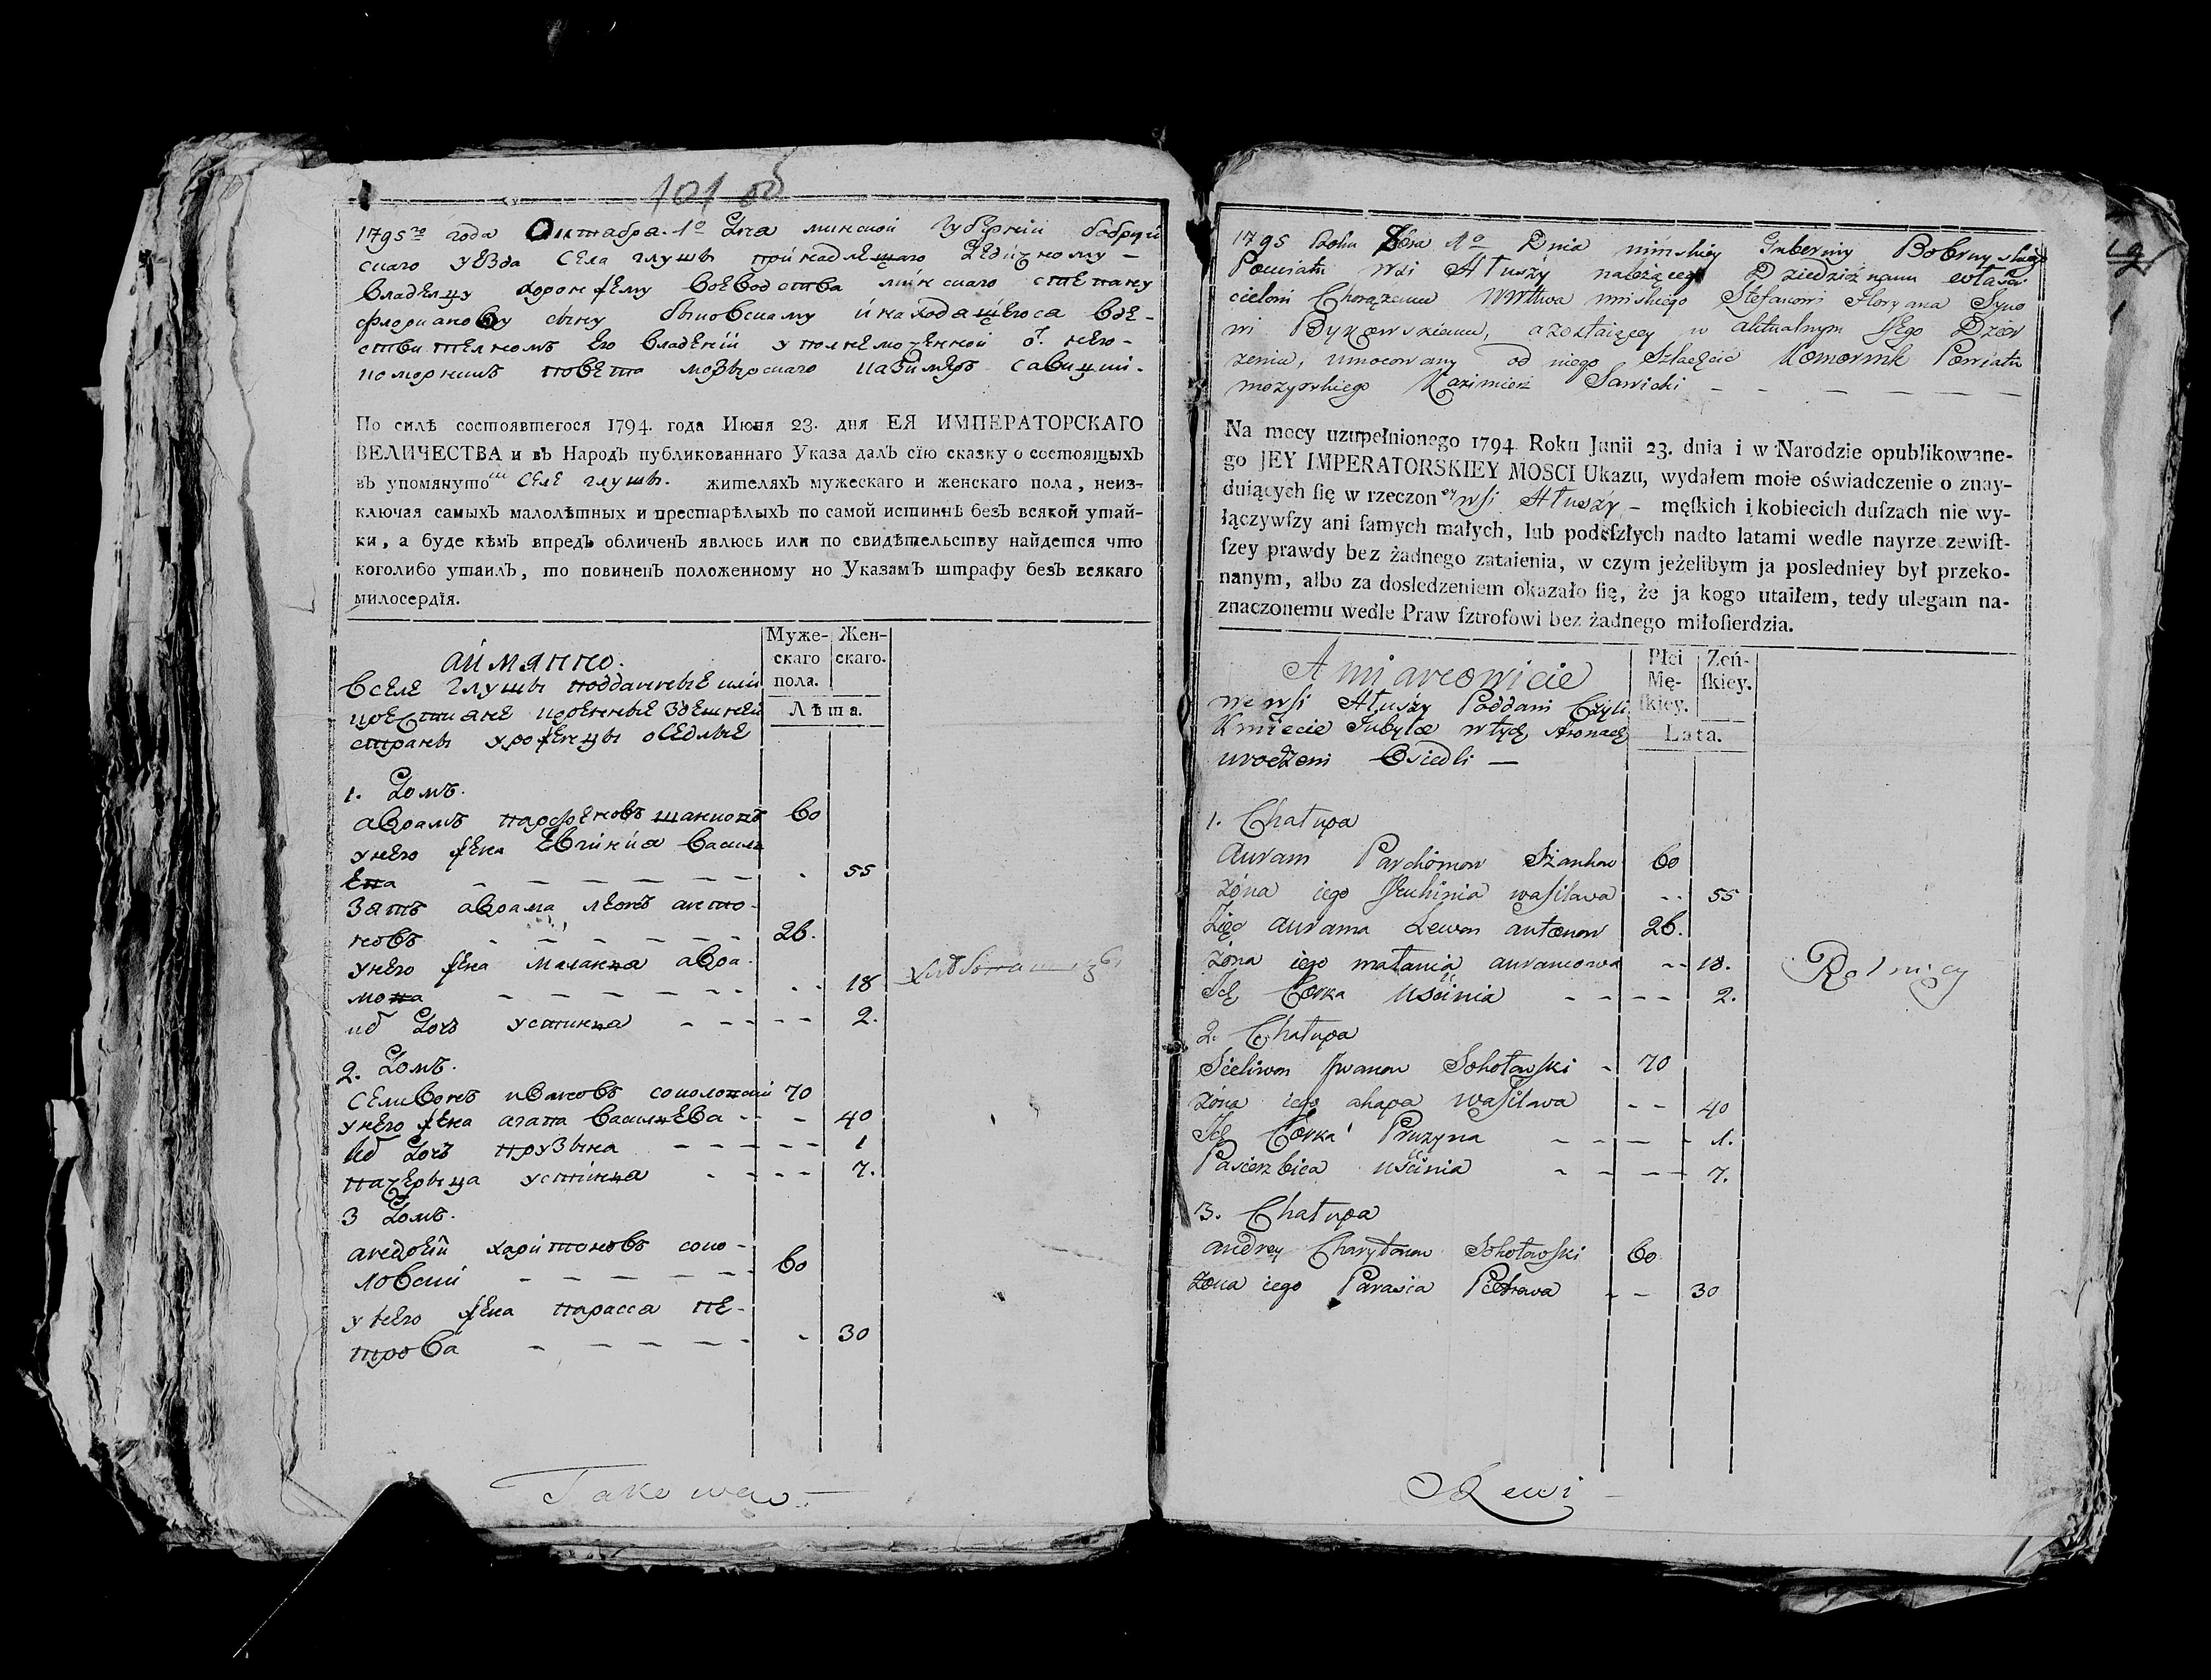 101 об
1795го года Октабра 1о Дна минской губернии бобруй
скаго уезда села глушы принадлежащаго Дедичному –
владелцу хоронжему воеводства минскаго степану
флориановву сыну быковскому и находащегося вде–
ствителномъ его владении уполнемоченной от него–
коморникъ повета мозырскаго казимеръ савицки.
По силѣ состоявшегося 1794. года Июня 23. дня ЕЯ ИМПЕРАТОРСКАГО
ВЕЛИЧЕСТВА и въ Народъ публикованнаго Указа далъ сїю сказку о состоящыхъ
въ упомянутом селе глушы. жителяхъ мужескаго и женскаго пола, неиз-
ключая самыхъ малолѣтныхъ и престарѣлыхъ по самой истиннѣ безъ всякой утай-
ки, а буде кѣмъ впредь обличенъ явлюсь или по свидѣтельству найдется что
коголибо утаилъ, то повиненъ положенному по Указамъ штрафу безъ всякаго
милосердїя.
Муже- Жен-
скаго скаго.
пола.
Лѣта.
аимянно.
вселе глушыподданные или
крестиане коренные здешней
страны уроженцы оседлые
1. Домъ.
аврамъ парфеновъ шанковъ 60
унего жена евгиниа васил
ева – – – – – – 55
Зять аврама леонъ анто-
новъ – – – – – – 26.
унего жена маланиа авра-
мова – – – – – – 18
их Дочъ устиниа – – – – – 2.
2. Домъ.
селивонъ ивановъ соколовски 70
унего жена агапа василиева – – – 40
их Дочъ прузына – – – – – 1
падчерыца устиниа – – – – 7.
3 Домъ.
андрей харитоновъ соко-
ловски – – – – – – 60
унего жена парасса пе-
трова – – – – – – 30
Takowe
1795 Roku 8bra 1o Dnia minskiey Guberniy Bobruyskiego
Powiatu wsi Hłuszy należącego Dziedzicznemu własci
cielowi Chorążemu Wdtwa minskiego Stefanowi Floryana Syno
wi Bykowskiemu, a zostaiącey w aktualnym Jego Dzier
zeniu, umocowany od niego Szlachcic Komornik Powiatu
mozyrskiego Kazimierz Sawicki – – – – – –
Na mocy uzupełnionego 1794 Roku Junii 23. dnia i w Narodzie opublikowane-
go JEY IMPERATORSKIEY MOSCI Ukazu, wydałem moie oświadczenie o znay-
duiących ſię w rzeczoney wsi Hłuszy – męſkich i kobiecich duſzach nie wy-
łączywſzy ani ſamych małych, lub podeſzłych nadto latami wedle nayrzeczewiſt-
ſzey prawdy bez żadnego zataienia, w czym jeżelibym ja posledniey był przeko-
nanym, albo za dosledzeniem okazało ſię, że ja kogo utaiłem, tedy ulegam na-
znaczonemu wedle Praw ſztrofowi bez żadnego miłoſierdzia.
Płci Żeń-
Mę- ſkiey.
ſkiey.
Lata.
A mianowicie
we wsi Hłuszy Poddani Czyli
Kmiecie w tych stronach
urodzeni Osiedli –
1. Chałupa
Auram Parchimow Szankow 60
Zona iego Jeuhinia wasilawa – – 55
Zięć aurama Lewon antonow 26.
Zona iego małania auramowa – – 18.
Ich Corka Uścinia – – – – 2.
Rolnicy
2. Chałupa
Sieliwon Jwanow Sokołowski – 70
Zona iego ahapa wasilawa – – 40
Ich Corka Pruzyna – – – – 1.
Pasierzbica Uścinia – – – – 7.
3. Chałupa
andrey Charytonow Sokołowski 60
Zona iego Parasia Pietrowa – – 30
Rewi –